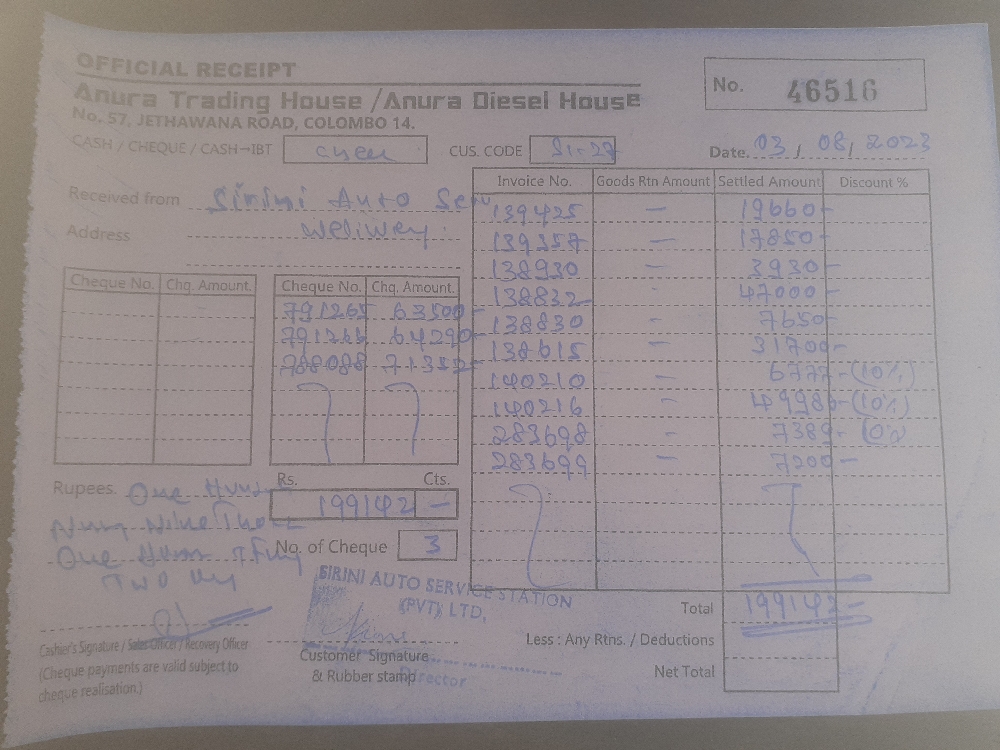 OFFICIAL RECEIPT
Anura Trading House /Anura Diesel House
No. 57, JETHAWANA ROAD, COLOMBO 14.
No. 46516
CASH / CHEQUE / CASH-IBT
CUS. CODE
Date. 03 / 08 / 2023
Received from Sirini Auto Serv
Address
Invoice No. Goods Rtn Amount Settled Amount Discount %
139425 — 19660-
139357 — 17850-
138930 — 3930-
138832 - 47000-
138830 - 7650-
138615 - 31700-
140210 - 6777-(10%)
140216 - 49986-(10%)
283698 - 7389-
283699 - 7200-
Cheque No. Chq. Amount.
Cheque No. Chq. Amount.
791265 63500-
791266 64290-
788088 71352-
Rs. Cts.
199142 -
Rupees. One
One
Two
No. of Cheque 3
SIRINI AUTO SERVICE STATION
(PVT) LTD,
Director
Total 199142-
Less : Any Rtns. / Deductions
Net Total
Cashier's Signature / Sales Officer / Recovery Officer
(Cheque payments are valid subject to
cheque realisation.)
Customer Signature
& Rubber stamp